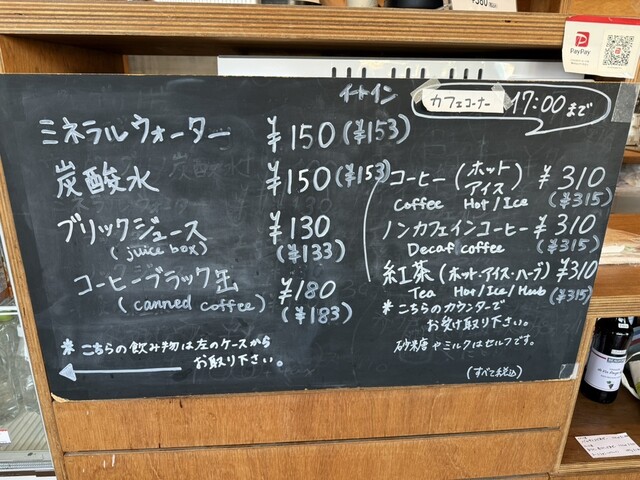 イートイン
ミネラルウォーター ¥150 (¥153)
炭酸水 ¥150 (¥153)
ブリックジュース ¥130
(juice box) (¥133)
コーヒーブラック缶 ¥180
(canned coffee) (¥183)
※こちらの飲み物は左のケースから
お取り下さい。
カフェコーナー 17:00まで
コーヒー (ホット アイス) ¥310
coffee Hot/Ice (¥315)
ノンカフェインコーヒー ¥310
Decaf coffee (¥315)
紅茶 (ホット・アイス・ハーブ) ¥310
Tea Hot/Ice/Hub (¥315)
※こちらのカウンターで
お受け取り下さい。
砂糖やミルクはセルフです。
(すべて税込)
PayPay